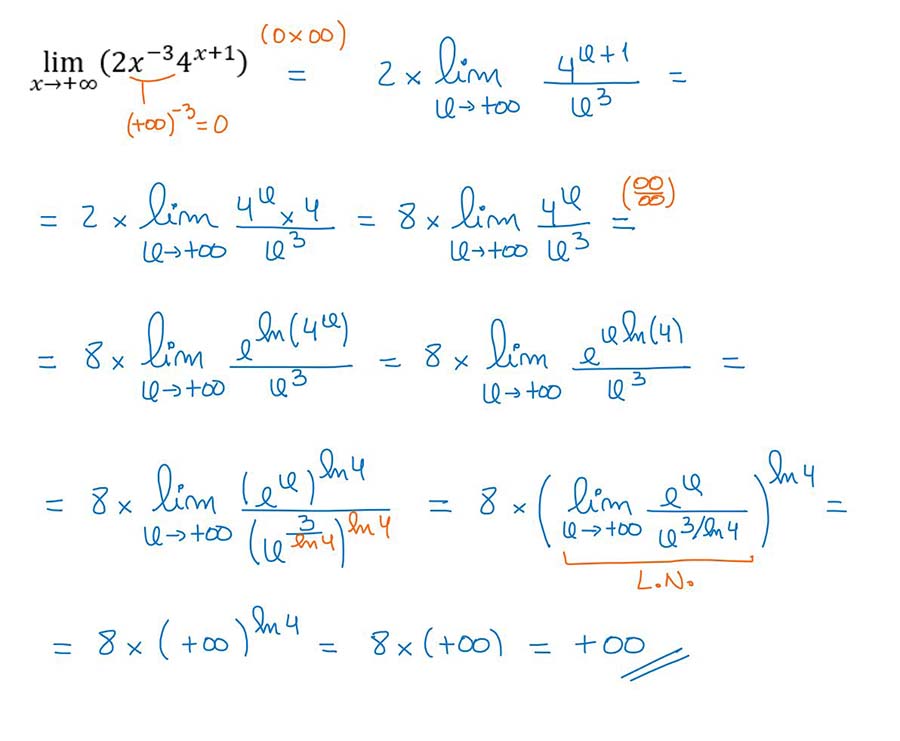 lim x→+∞ (2x⁻³4ˣ⁺¹) (0×∞) = 2 × lim x→+∞ 4ˣ⁺¹/x³ =
(+∞)⁻³ = 0
= 2 × lim x→+∞ (4ˣ × 4)/x³ = 8 × lim x→+∞ 4ˣ/x³ (∞/∞) =
= 8 × lim x→+∞ e^(ln(4ˣ))/x³ = 8 × lim x→+∞ e^(x ln(4))/x³ =
= 8 × lim x→+∞ (eˣ)^(ln4)/(x^(3/ln4))^(ln4) = 8 × (lim x→+∞ eˣ/x^(3/ln4))^(ln4) =
L.N.
= 8 × (+∞)^(ln4) = 8 × (+∞) = +∞